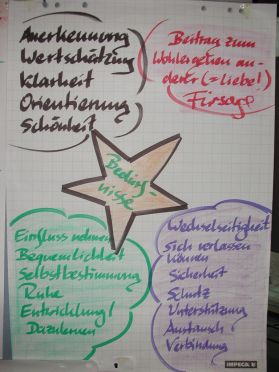 Anerkennung
Wertschätzung
Klarheit
Orientierung
Schönheit
Beitrag zum
Wohlergehen an-
derer (= Liebe!)
Fürsorge
Bedürf-
nisse
Einfluss nehmen
Bequemlichkeit
Selbstbestimmung
Ruhe
Entwicklung/
Dazulernen
Wechselseitigkeit
sich verlassen
können
Sicherheit
Schutz
Unterstützung
Austausch
Verbindung
IMPEGA